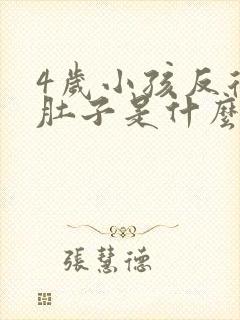 4歲小孩反復
肚子是什麼
張慧德